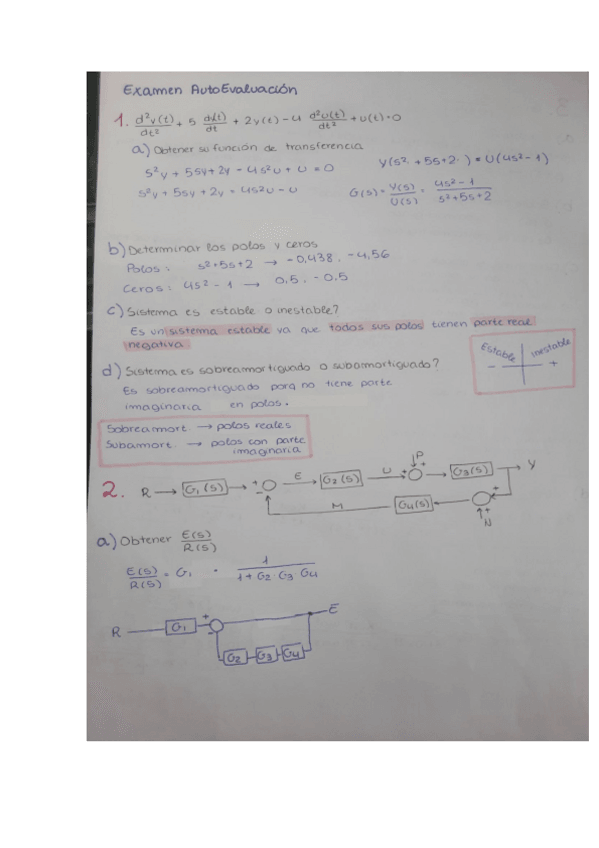 Examen AutoEvaluación
1. d²y(t)/dt² + 5 dy(t)/dt + 2y(t) - 4 d²u(t)/dt² + u(t) = 0
a) Obtener su función de transferencia
s²y + 5sy + 2y - 4s²u + u = 0
s²y + 5sy + 2y = 4s²u - u
y(s² + 5s + 2) = u(4s² - 1)
G(s) = Y(s)/U(s) = 4s² - 1/s² + 5s + 2
b) Determinar los polos y ceros
Polos: s² + 5s + 2 → -0,438, -4,56
Ceros: 4s² - 1 → 0.5, -0.5
c) Sistema es estable o inestable?
Es un sistema estable ya que todos sus polos tienen parte real
negativa
Estable inestable
- +
d) Sistema es sobreamortiguado o subamortiguado?
Es sobreamortiguado porq no tiene parte
imaginaria en polos.
Sobreamort. → polos reales
Subamort. → polos con parte
imaginaria
2. R → G₁(s) → + - E → G₂(s) U + P + G₃(s) → Y
M G₄(s) + + N
a) Obtener E(s)/R(s)
E(s)/R(s) = G₁ · 1/1 + G₂ · G₃ · G₄
R G₁ + - E
G₂ G₃ G₄